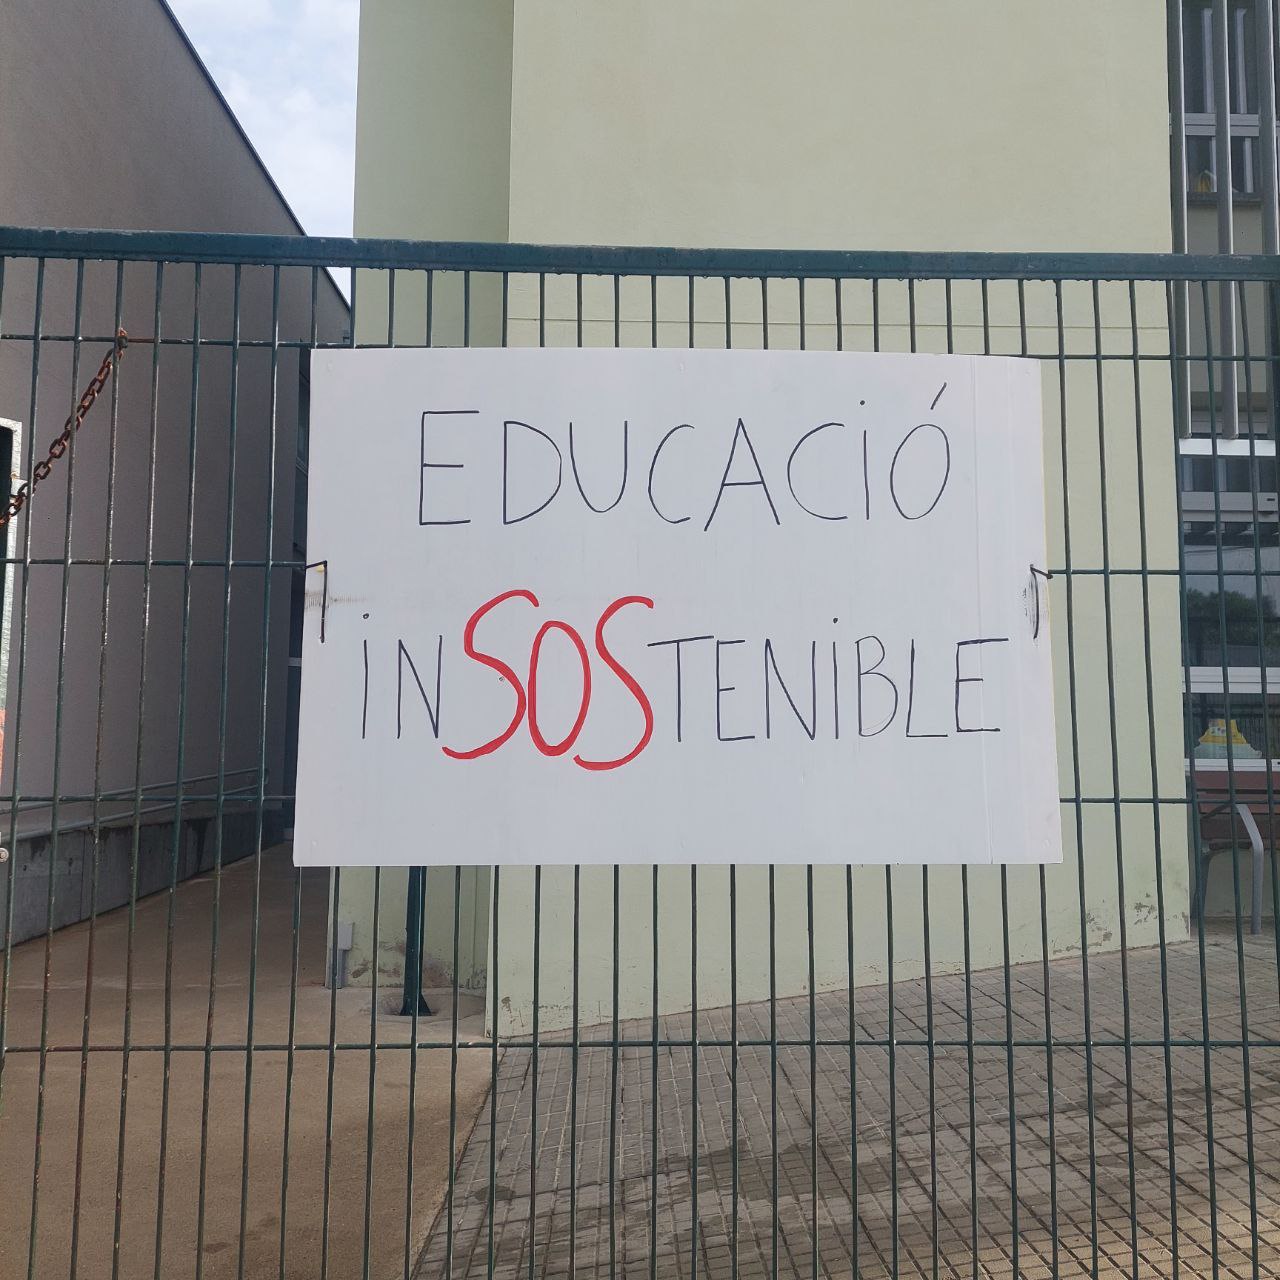 EDUCACIÓ
INSOSTENIBLE